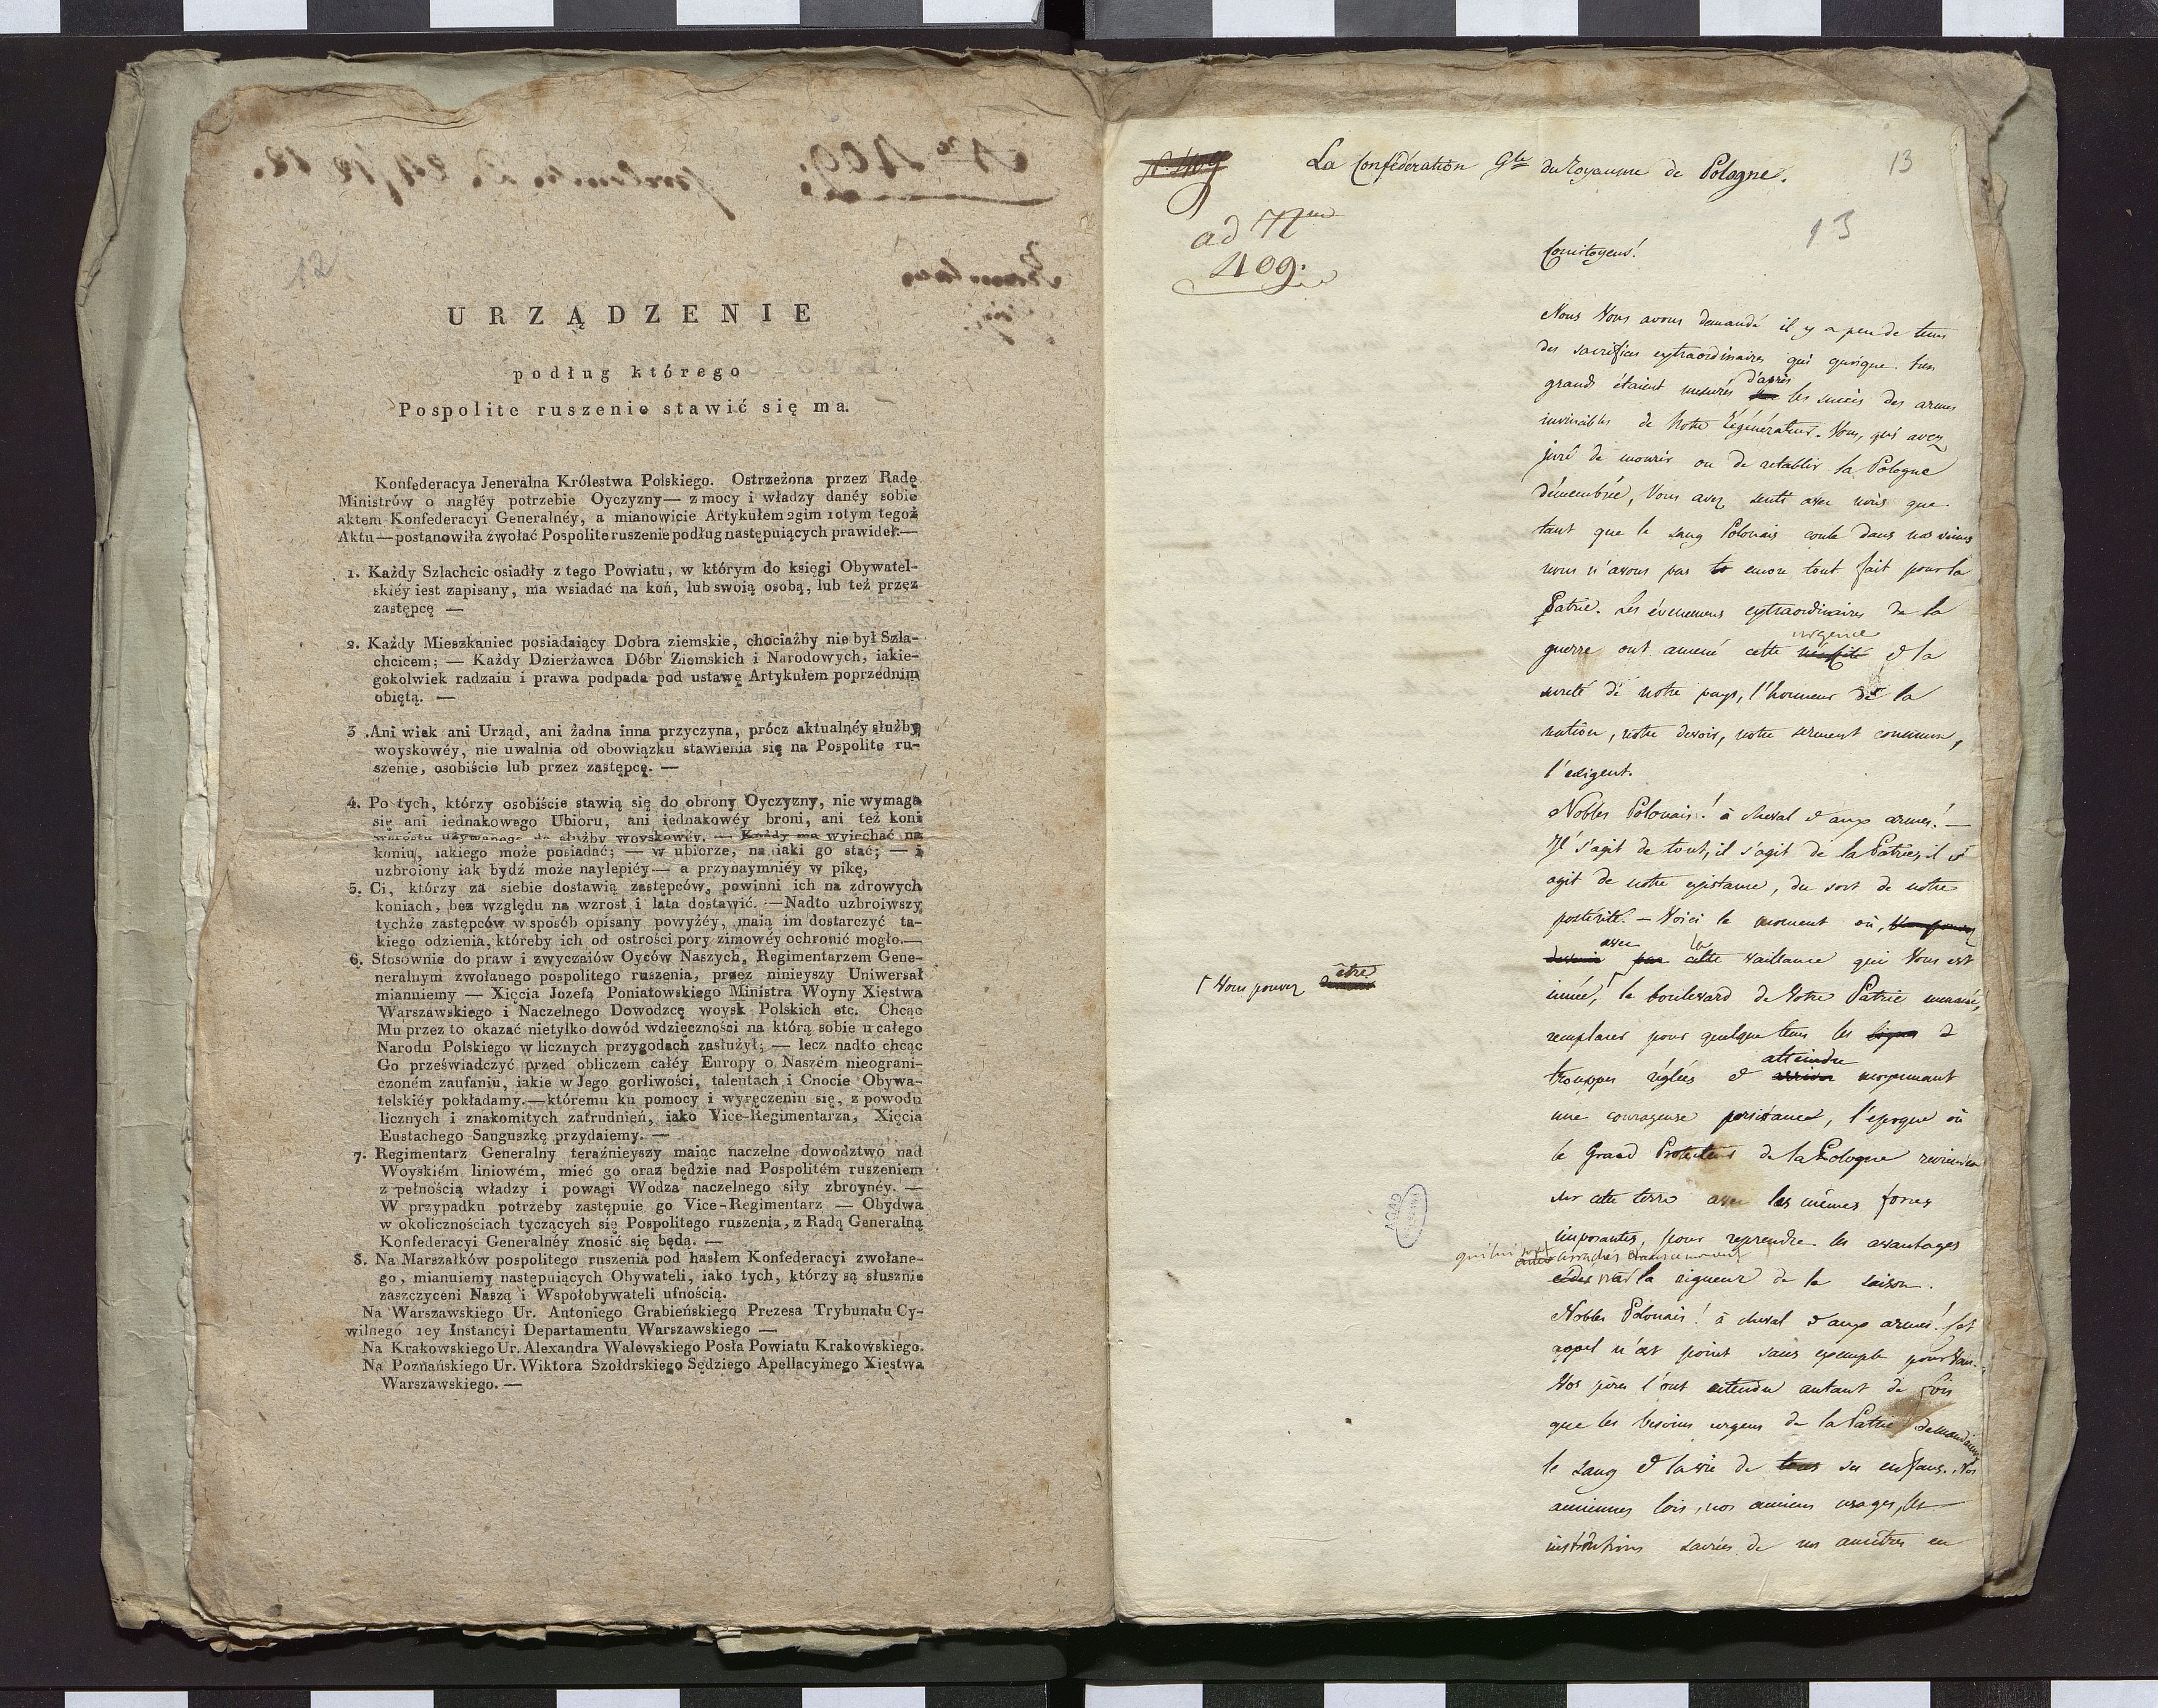 12
URZĄDZENIE
podług którego
Pospolite ruszenie stawić się ma.
Konfederacya Jeneralna Królestwa Polskiego. Ostrzeżona przez Radę
Ministrów o nagłéy potrzebie Oyczyzny— z mocy i władzy danéy sobie
aktem Konfederacyi Generalnéy, a mianowicie Artykułem 2gim 10tym tegoż
Aktu—postanowiła zwołać Pospolite ruszenie podług następuiących prawideł:—
1. Każdy Szlachcic osiadły z tego Powiatu, w którym do księgi Obywatel-
skiéy iest zapisany, ma wsiadać na koń, lub swoią osobą, lub też przez
zastępcę —
2. Każdy Mieszkaniec posiadaiący Dobra ziemskie, chociażby nie był Szla-
chcicem; — Każdy Dzierżawca Dóbr Ziemskich i Narodowych, iakie-
gokolwiek radzaiu i prawa podpada pod ustawę Artykułem poprzednim
obiętą. —
3 .Ani wiek ani Urząd, ani żadna inna przyczyna, prócz aktualnéy służby
woyskowéy, nie uwalnia od obowiązku stawienia się na Pospolite ru-
szenie, osobiście lub przez zastępcę. —
4. Po tych, którzy osobiście stawią się do obrony Oyczyzny, nie wymaga
się ani iednakowego Ubioru, ani iednakowéy broni, ani też koni
wzrostu używanego do służby woyskowéy. — Każdy ma wyiechać na
koniu, iakiego może posiadać; — w ubiorze, na iaki go stać; — i
uzbroiony iak bydź może naylepiéy — a przynaymniéy w pikę,
5. Ci, którzy za siebie dostawią zastępców, powinni ich na zdrowych
koniach, bez względu na wzrost i lata dostawić. —Nadto uzbroiwszy
tychże zastępców w sposób opisany powyżéy, maią im dostarczyć ta-
kiego odzienia, któreby ich od ostrości pory zimowéy ochronić mogło.—
6. Stosownie do praw i zwyczaiów Oyców Naszych, Regimentarzem Gene-
neralnym zwołanego pospolitego ruszenia, przez ninieyszy Uniwersał
mianuiemy — Xięcia Jozefa Poniatowskiego Ministra Woyny Xięstwa
Warszawskiego i Naczelnego Dowodzcę woysk Polskich etc. Chcąc
Mu przez to okazać nietylko dowód wdzięczności na którą sobie u całego
Narodu Polskiego w licznych przygodach zasłużył; — lecz nadto chcąc
Go przeświadczyć przed obliczem całéy Europy o Naszém nieograni-
czoném zaufaniu, iakie w Jego gorliwości, talentach i Cnocie Obywa-
telskiéy pokładamy.—któremu ku pomocy i wyręczeniu się, z powodu
licznych i znakomitych zatrudnień, iako Vice-Regimentarza, Xięcia
Eustachego Sanguszkę przydaiemy. —
7. Regimentarz Generalny teraźnieyszy maiąc naczelne dowodztwo nad
Woyskiém liniowém, mieć go oraz będzie nad Pospolitém ruszeniem
z pełnością władzy i powagi Wodza naczelnego siły zbroynéy. —
W przypadku potrzeby zastępuie go Vice-Regimentarz — Obydwa
w okolicznościach tyczących się Pospolitego ruszenia, z Radą Generalną
Konfederacyi Generalnéy znosić się będą. —
8. Na Marszałków pospolitego ruszenia pod hasłem Konfederacyi zwołane-
go, mianuiemy następuiących Obywateli, iako tych, którzy są słusznie
zaszczyceni Naszą i Wspołobywateli ufnością.
Na Warszawskiego Ur. Antoniego Grabieńskiego Prezesa Trybunału Cy-
wilnego 1ey Instancyi Departamentu Warszawskiego —
Na Krakowskiego Ur. Alexandra Walewskiego Posła Powiatu Krakowskiego.
Na Poznańskiego Ur. Wiktora Szołdrskiego Sędziego Apellacyinego Xięstwa
Warszawskiego. —
La Confédération Gle du Royaume de Pologne.
13
13
ad Num
409.
Concitoyens!
Nous Vous avons demandé il y a peu de tems
des sacrifices extraordinaires qui quoique très
grands étaient mesurés d'après les succès des armes
invincibles de Notre Régénérateur. Vous, qui avez
juré de mourir ou de retablir la Pologne
démembrée, Vous avez senti avec nous que
tant que le sang Polonais coule dans nos veines
nous n'avons pas encore tout fait pour la
Patrie. Les évenemens extraordinaires de la
guerre ont amené cette urgence & la
sureté de notre pays, l'honneur de la
nation, notre devoir, notre serment commun,
l'exigent.
Nobles Polonais! à cheval & aux armes! —
Il s'agit de tout, il s'agit de la Patrie, il s'
agit de notre existance, du sort de notre
postérité. — Voici le moment où,
avec la vaillance qui Vous est
Vous pouvez être
innée, le boulevard de Votre Patrie menacée,
remplacer pour quelque tems les
trouppes réglées & atteindre moyennant
une courageuse persistance, l'epoque où
le Grand Protecteur de la Pologne reviendra
sur cette terre avec les mêmes forces
imposantes, pour reprendre les avantages
qui lui sont arrachés
par la rigueur de la saison.
Nobles Polonais! à cheval & aux armes! Cet
appel n'est point sans exemple pour Vous.
Vos pères l'ont entendu autant de fois
que les besoins urgens de la Patrie demandaient
le sang & la vie de ses enfans. Nos
anciennes lois, nos anciens usages, les
institutions sacrées de nos ancêtres en